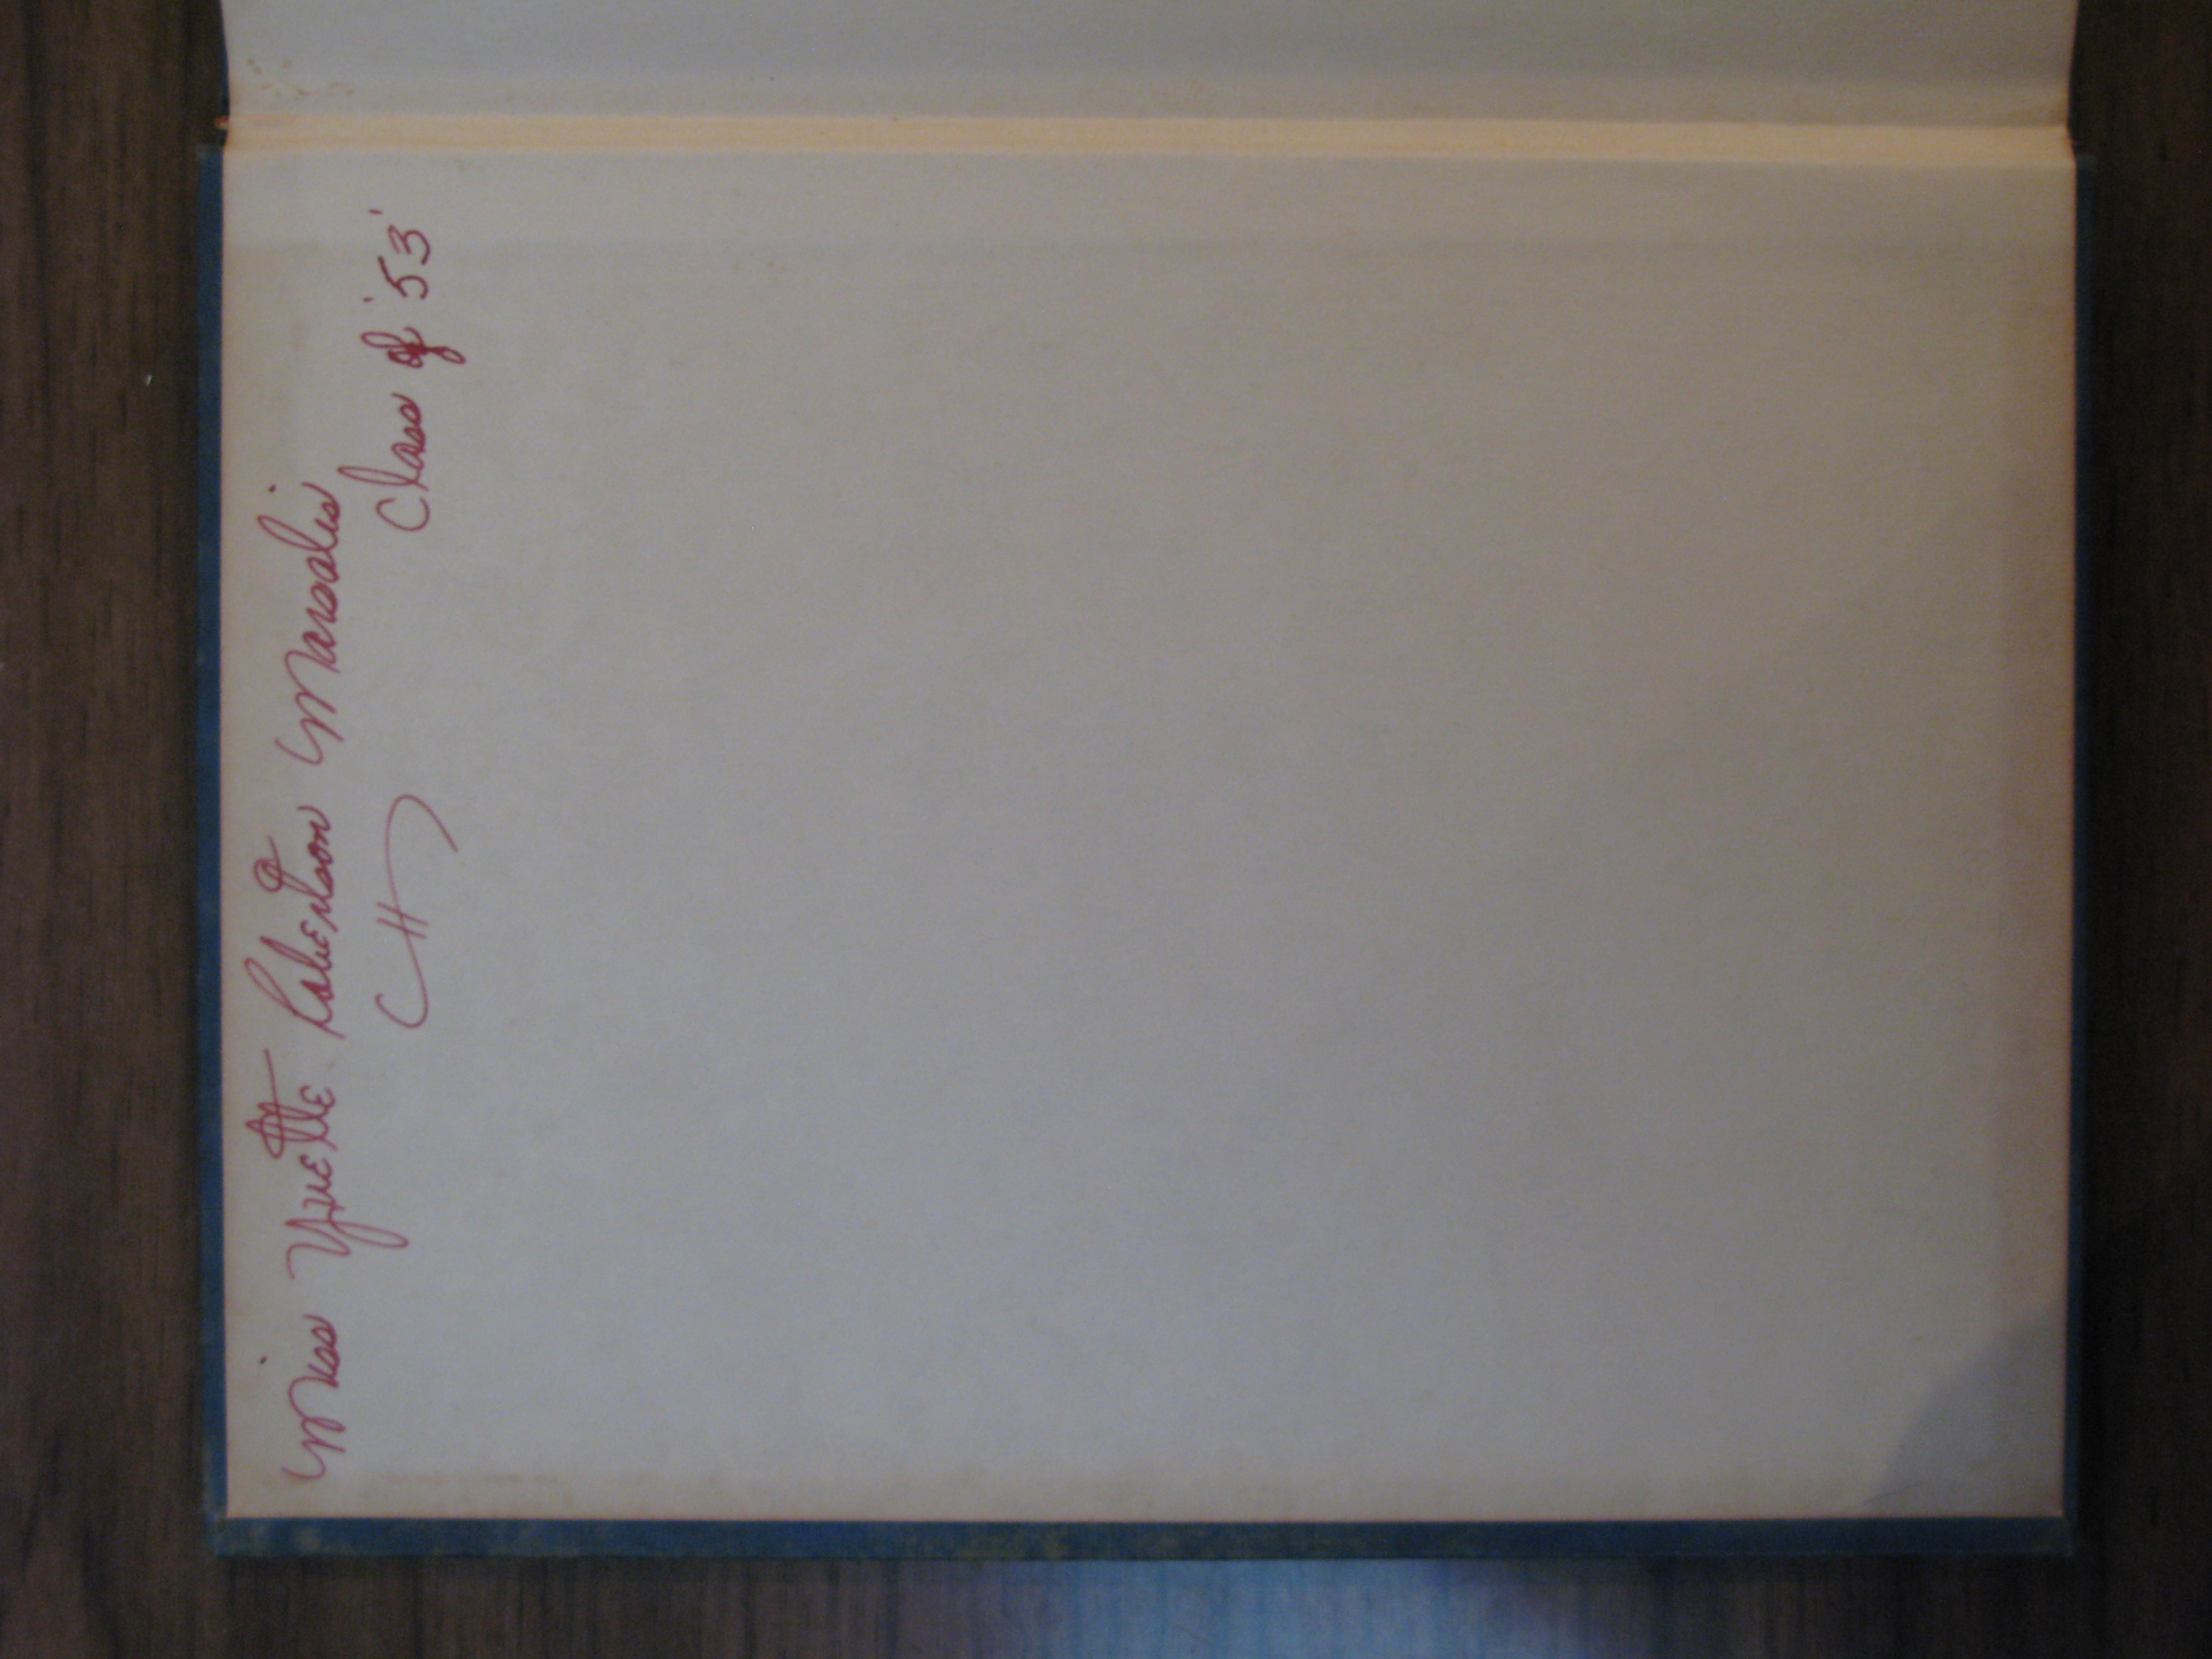 Miss Yvette Robertson Marsalis
Class of '53'